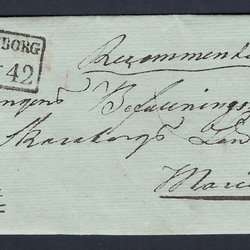 BORG
42
Recommende
ngens Befallnings
Skaraborgs Län
Marie